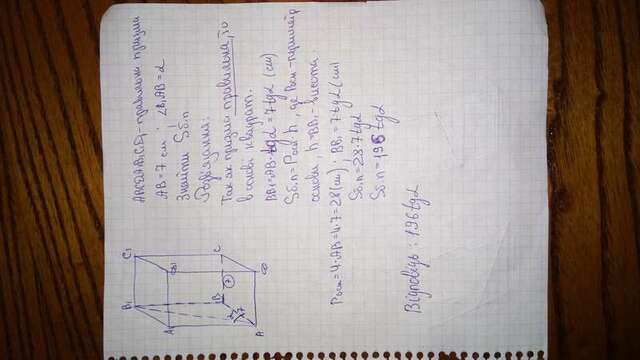 ABCDA₁B₁C₁D₁-правильна призма
AB=7 см ; ∠B₁AB=α
Знайти Sб.п
Розв'язування:
Так як призма правильна, то
в основі квадрат.
BB₁=AB·tgα=7tgα (см)
Sб.п=Pосн·h, де Pосн-периметр
основи, h=BB₁-висота
Pосн=4·AB=4·7=28(см); BB₁=7tgα(см)
Sб.п=28·7tgα
Sб.п=196tgα
Відповідь: 196tgα
C₁
D₁
C
D
B₁
A₁
B
7
α
7
A